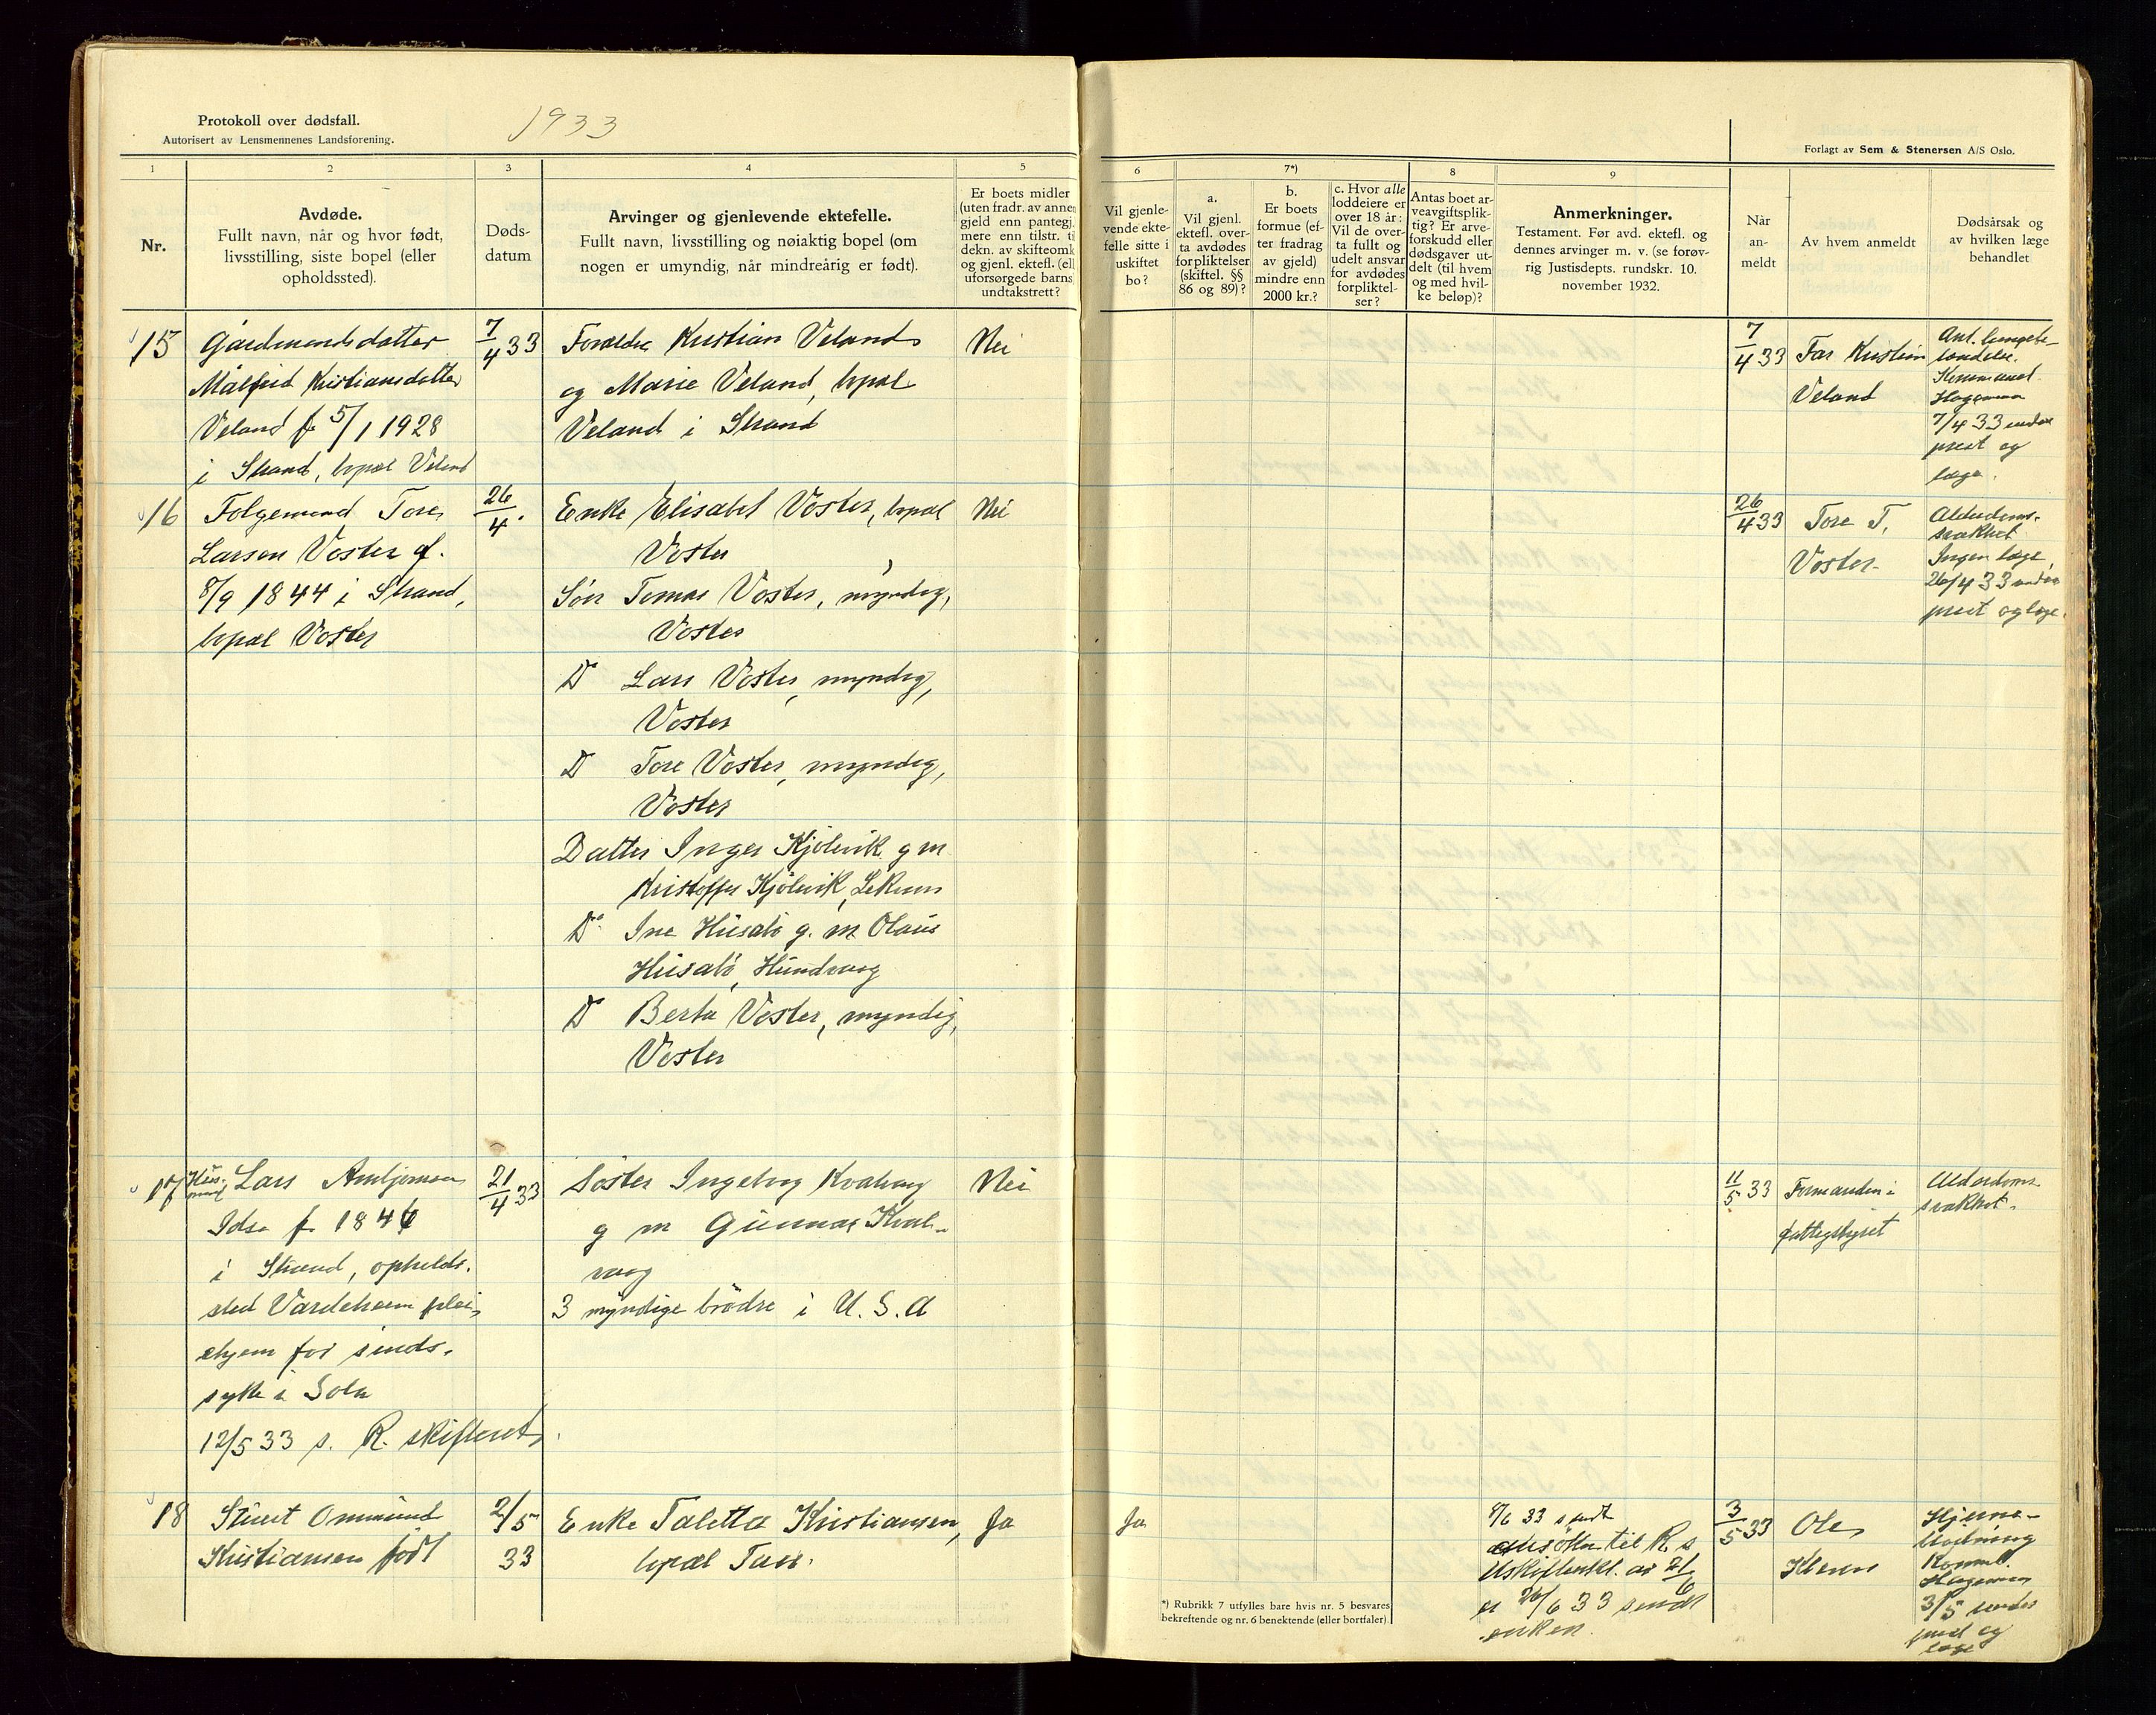 Protokoll over dødsfall.
Autorisert av Lensmennenes Landsforening.
1933
Forlagt av Sem & Stenersen A/S Oslo.
1
2
3
4
5
6
7*)
8
9
Nr.
Avdøde.
Fullt navn, når og hvor født,
livsstilling, siste bopel (eller
opholdssted).
Døds-
datum
Arvinger og gjenlevende ektefelle.
Fullt navn, livsstilling og nøiaktig bopel (om
nogen er umyndig, når mindreårig er født).
Er boets midler
(uten fradr. av annen
gjeld enn pantegj.
mere enn tilstr. ti
dekn. av skifteomk
og gjenl. ektefl. (ell
uforsørgede barns
undtakstrett?
Vil gjenle-
vende ekte-
felle sitte i
uskiftet
bo?
a.
Vil gjenl.
ektefl. over-
ta avdødes
forpliktelser
(skiftel. §§
86 og 89)?
b.
Er boets
formue (ef-
ter fradrag
av gjeld)
mindre enn
2000 kr.?
c. Hvor alle
loddeiere er
over 18 år:
Vil de over-
ta fullt og
udelt ansvar
for avdødes
forpliktel-
ser?
Antas boet ar-
veavgiftsplik-
tig? Er arve-
forskudd eller
dødsgaver ut-
delt (til hvem
og med hvil-
ke beløp)?
Anmerkninger.
Testament. Før avd. ektefl. og
dennes arvinger m. v. (se forøv-
rig Justisdepts. rundskr. 10.
november 1932.
Når
an-
meldt
Av hvem anmeldt
Dødsårsak og
av hvilken læge
behandlet
15
Gårdmandsdatter
Målfrid Kristiansdatter
Veland f 5/1 1928
i Strand, bopæl Veland
7/4 33
Forældre Kristian Veland
og Marie Veland, bopæl
Veland i Strand
Nei
7/4 33
Far Kristian
Veland
Hageman
7/4 33
prest og
læge.
16
Folgemand Tore
Larsen Voster f.
8/9 1844 i Strand,
bopæl Voster
26/4.
Enke Elisabet Voster, bopæl
Voster
Søn Tomas Voster, myndig,
Voster
D Lars Voster, myndig,
Voster
D Tore Voster, myndig,
Voster
Datter Inger Kjølevik g m
Kristoffer Kjølevik,
D Ine Husabø g. m Olaus
Husabø, Hundvaag
D Berta Voster, myndig,
Voster
Nei
26/4 33
Tore T.
Voster
Alderdoms-
svakhet
Ingen læge,
26/4 33
prest og læge.
17
Hus-
mand
Lars
Idse f 1846
i Strand, opholds.
sted Vardeheim plei-
ehjem for sinds-
syke i Sola
12/5 33 s. R. skifteret
21/4 33
Søster Ingeborg Kvalvaag
g m Gunnar Kval-
vaag
3 myndige brødre i U. S. A
Nei
11/5 33
Formanden i
fattigstyret
Alderdoms-
svakhet.
18
Ommund
Kristiansen født
2/5
33
Enke Taletta Kristiansen,
bopæl Tau.
Ja
Ja
9/6 33 sendt
til R s
av 21/6
er 26/6 33 sendt
enken.
3/5 33
Ole
Hjerne-
blødning
Hageman
3/5
prest og
læge
*) Rubrikk 7 utfylles bare hvis nr. 5 besvares
bekreftende og nr. 6 benektende (eller bortfaler)